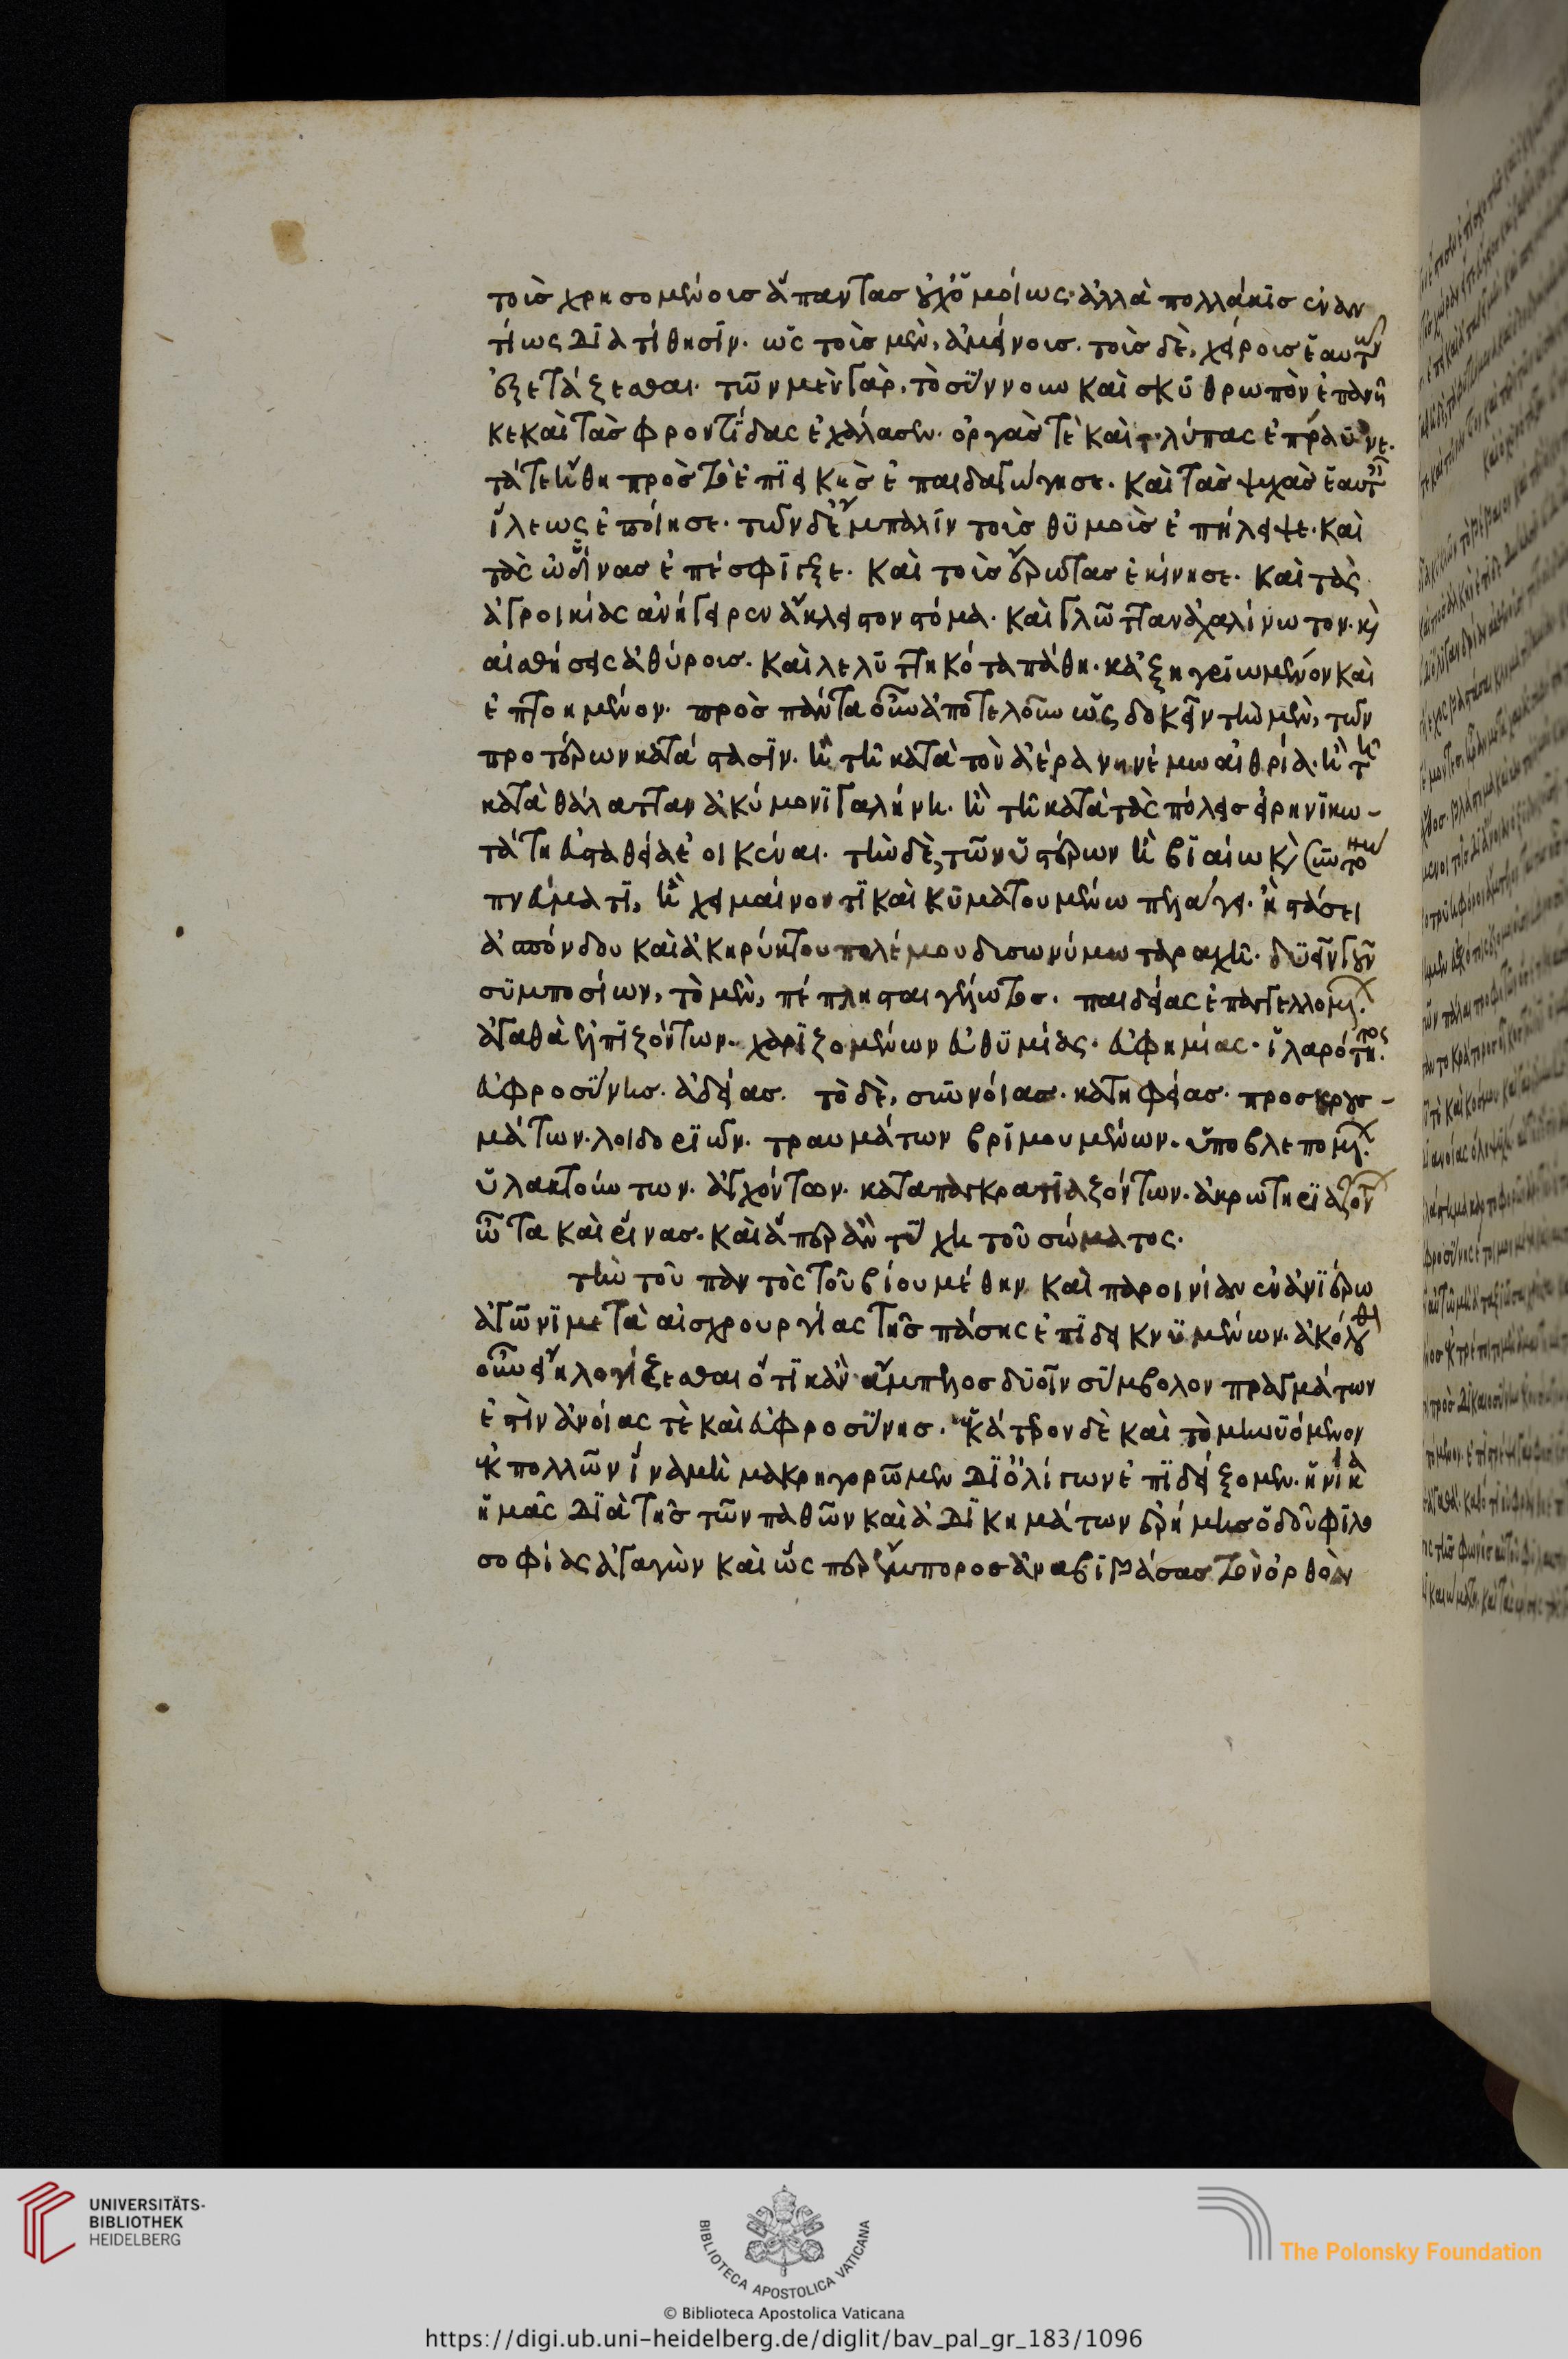 τοῖς χρησομένοις ἅπαντας οὐχ ὁμοίως· ἀλλὰ πολλάκις ἐναν
τίως διατίθησιν. ὡς τοῖς μὲν, ἀμείνοις. τοῖς δὲ, χείροις ἑαυτῶν
ἐξετάζεσθαι. τῶν μὲν γὰρ, τὸ σύννουν καὶ σκυθρωπὸν ἐπανῆ
κε καὶ τὰς φροντίδας ἐχάλασεν. ὀργάς τε καὶ τ. λύπας ἐπράϋνε.
τά τε ἤθη πρὸς τὸ ἐπιεικὲς ἐπαιδαγώγησε. καὶ τὰς ψυχὰς ἑαυτοῖς
ἵλεως ἐποίησε. τῶν δὲ ἔμπαλιν τοῖς θυμοῖς ἐπήλειψε. καὶ
τὰς ὠδῖνας ἐπέσφιγξε. καὶ τοὺς ἔρωτας ἐκίνησε. καὶ τὰς
ἀγροικίας ἀνήγειρεν ἄκλειστον στόμα. καὶ γλῶτταν ἀχαλίνωτον. κὶ
αἰσθήσεις ἀθύροις. καὶ λελυττηκότα πάθη. κἀξηγριωμένον καὶ
ἐπτοημένον. πρὸς πάντα οὖν ἀποτελοῦν ὡς δοκεῖν τὴν μὲν, τῶν
προτέρων κατάστασιν. ἢ τῇ κατὰ τὸν ἀέρα νηνέμω αἰθρία. ἢ τῇ
κατὰ θάλατταν ἀκύμονι γαλήνη. ἢ τῇ κατὰ τὰς πόλεις εἰρηνικω-
τάτη εὐσταθεία ἐοικέναι. τὴν δὲ, τῶν ὑστέρων ἢ βιαίω κὶ συντόνω
πνεύματι, ἢ χειμαίνοντι καὶ κυματουμένω πελάγει. ἢ στάσει
ἀσπόνδου καὶ ἀκηρύκτου πολέμου δυσωνύμω ταραχῇ. δυεῖν γοῦν
συμποσίων, τὸ μὲν, πέπλησται γέλωτος. παιδείας ἐπαγγελλομεν.
ἀγαθὰ ἐλπιζόντων. χαριζομένων εὐθυμίας. εὐφημίας. ἱλαρότητος.
εὐφροσύνης. ἀδείας. τὸ δὲ, συννοίας. κατηφείας. προσκρους-
μάτων. λοιδοριῶν. τραυμάτων βριμουμένων. ὑποβλεπομεν.
ὑλακτούντων. ἀγχόντων. καταπαγκρατιαζόντων. ἀκρωτηριαζόντων
ὦτα καὶ ῥῖνας. καὶ ἅπερ ἂν τύχη τοῦ σώματος.
τὴν τοῦ παντὸς τοῦ βίου μέθην καὶ παροινίαν ἐν ἀνιέρω
ἀγῶνι μετὰ αἰσχρουργίας τῆς πάσης ἐπιδεικνυμένων. ἀκόλουθον
οὖν εἴη λογίζεσθαι ὅτι κἂν ἄμπελος δυοῖν σύμβολον πραγμάτων
ἐστὶν ἀνοίας τὲ καὶ εὐφροσύνης. ἑκάτερον δὲ καὶ τὸ μηνυόμενον
ἐκ πολλῶν ἵνα μὴ μακρηγορῶμεν δι' ὀλίγων ἐπιδείξομεν. ἡνίκα
ἡμᾶς διὰ τῆς τῶν παθῶν καὶ ἀδικημάτων ἐρήμης ὁδοῦ φιλο
σοφίας ἀγαγὼν καὶ ὥσπερ ἔμπορος ἀναβιβάσας τὸν ὀρθὸν
UNIVERSITÄTS-
BIBLIOTHEK
HEIDELBERG
BIBLIOTECA APOSTOLICA VATICANA
The Polonsky Foundation
© Biblioteca Apostolica Vaticana
https://digi.ub.uni-heidelberg.de/diglit/bav_pal_gr_183/1096